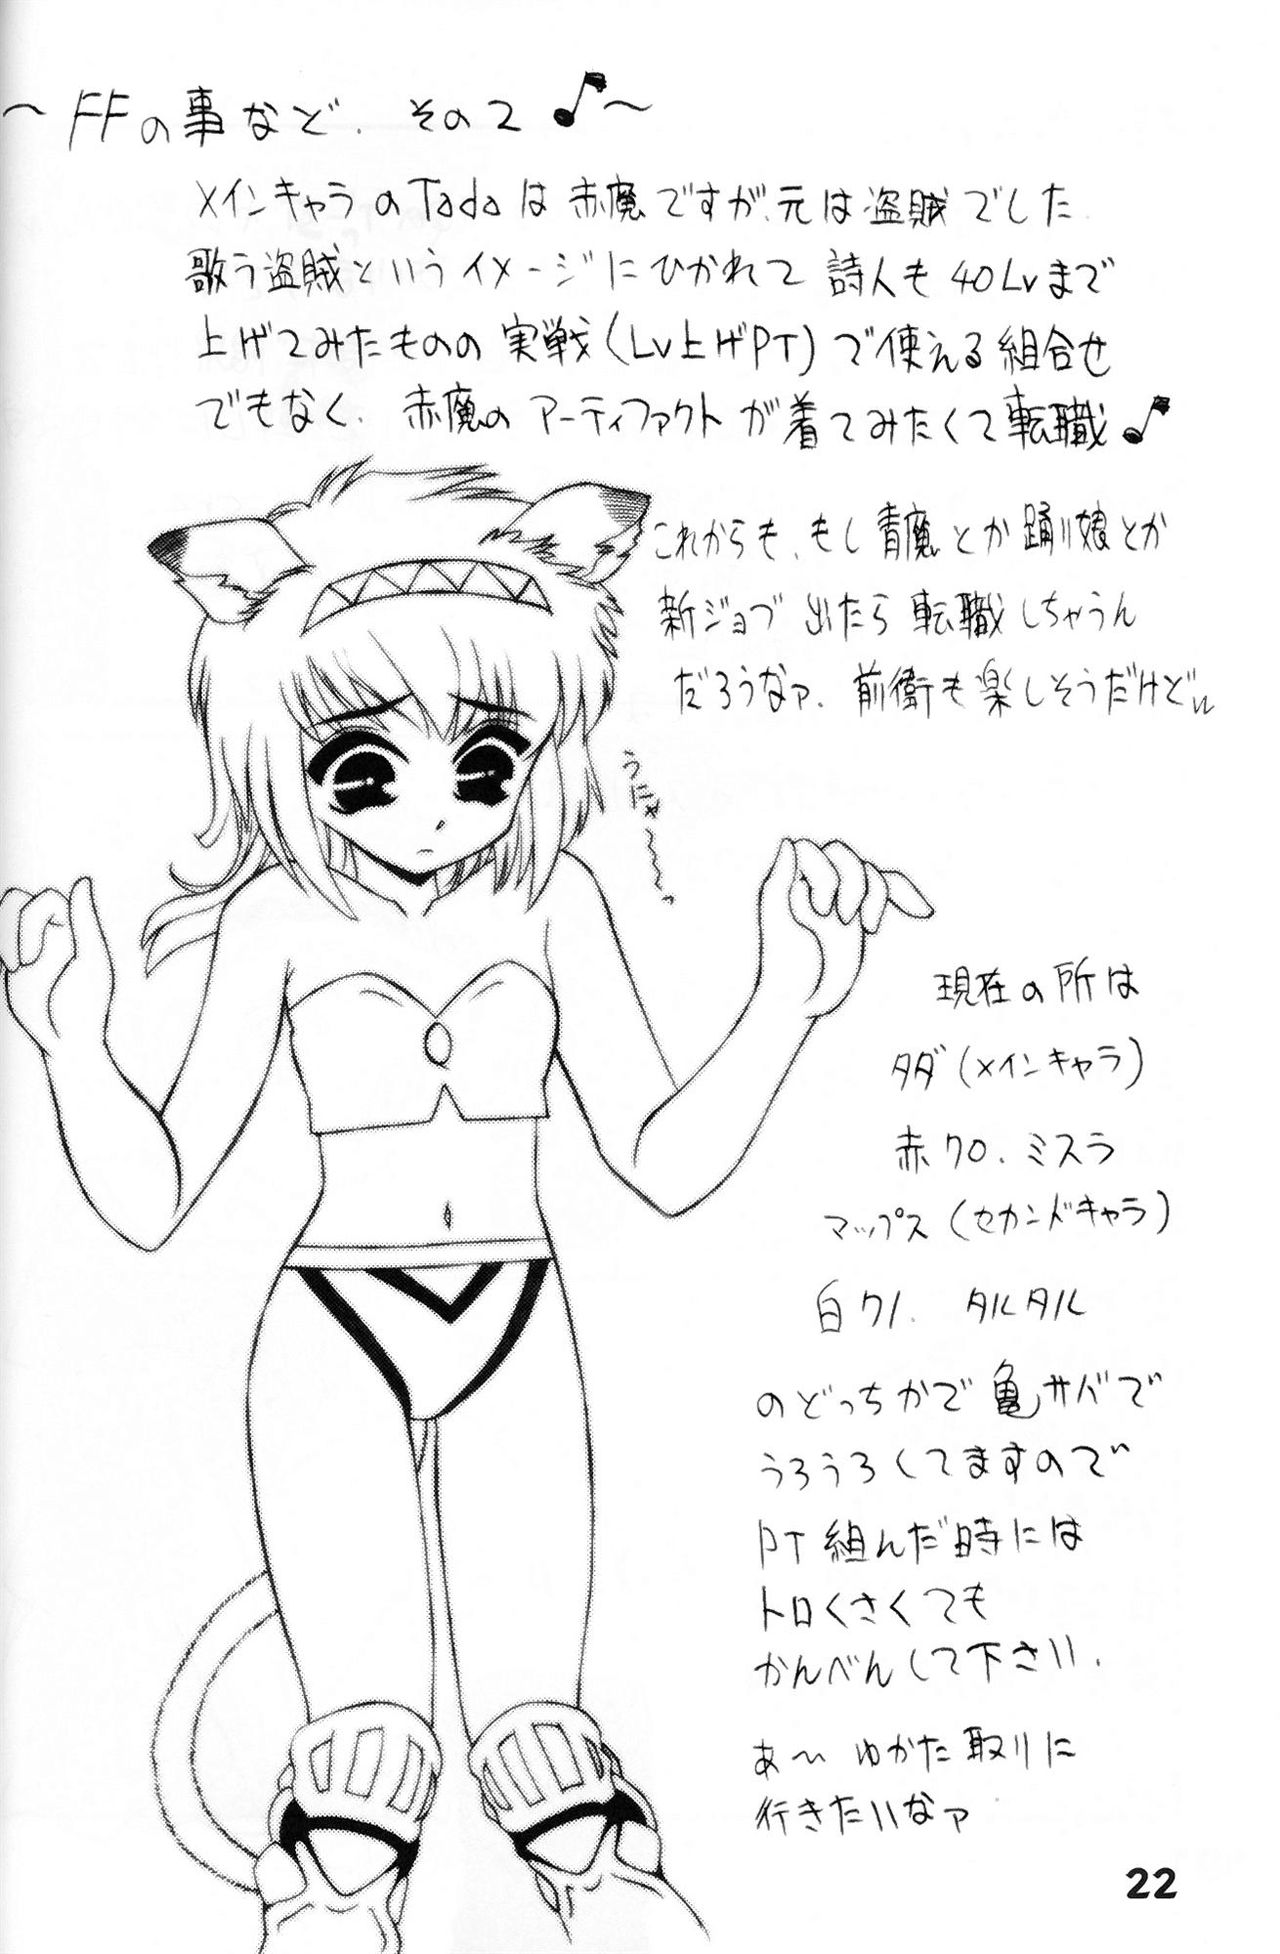 ～FFの事など、その2♪～
メインキャラのTadaは赤魔ですが、元は盗賊でした
歌う盗賊というイメージにひかれて詩人も40Lvまで
上げてみたものの実戦(Lv上げPT)で使える組合せ
でもなく、赤魔のアーティファクトが着てみたくて転職♪
これからも、もし青魔とか踊り娘とか
新ジョブ出たら転職しちゃうん
だろうなァ、前衛も楽しそうだけど
うにゃ～～～っ
現在の所は
タダ(メインキャラ)
赤70、ミスラ
マップス(セカンドキャラ)
白71、タルタル
のどっちかで亀サバで
うろうろしてますので
PT組んだ時には
トロくさくても
かんべんして下さい、
あ～ゆかた取りに
行きたいなァ
22